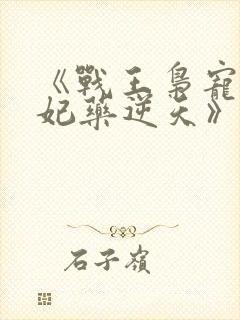 《戰王梟寵
妃藥逆天》
石子嶺